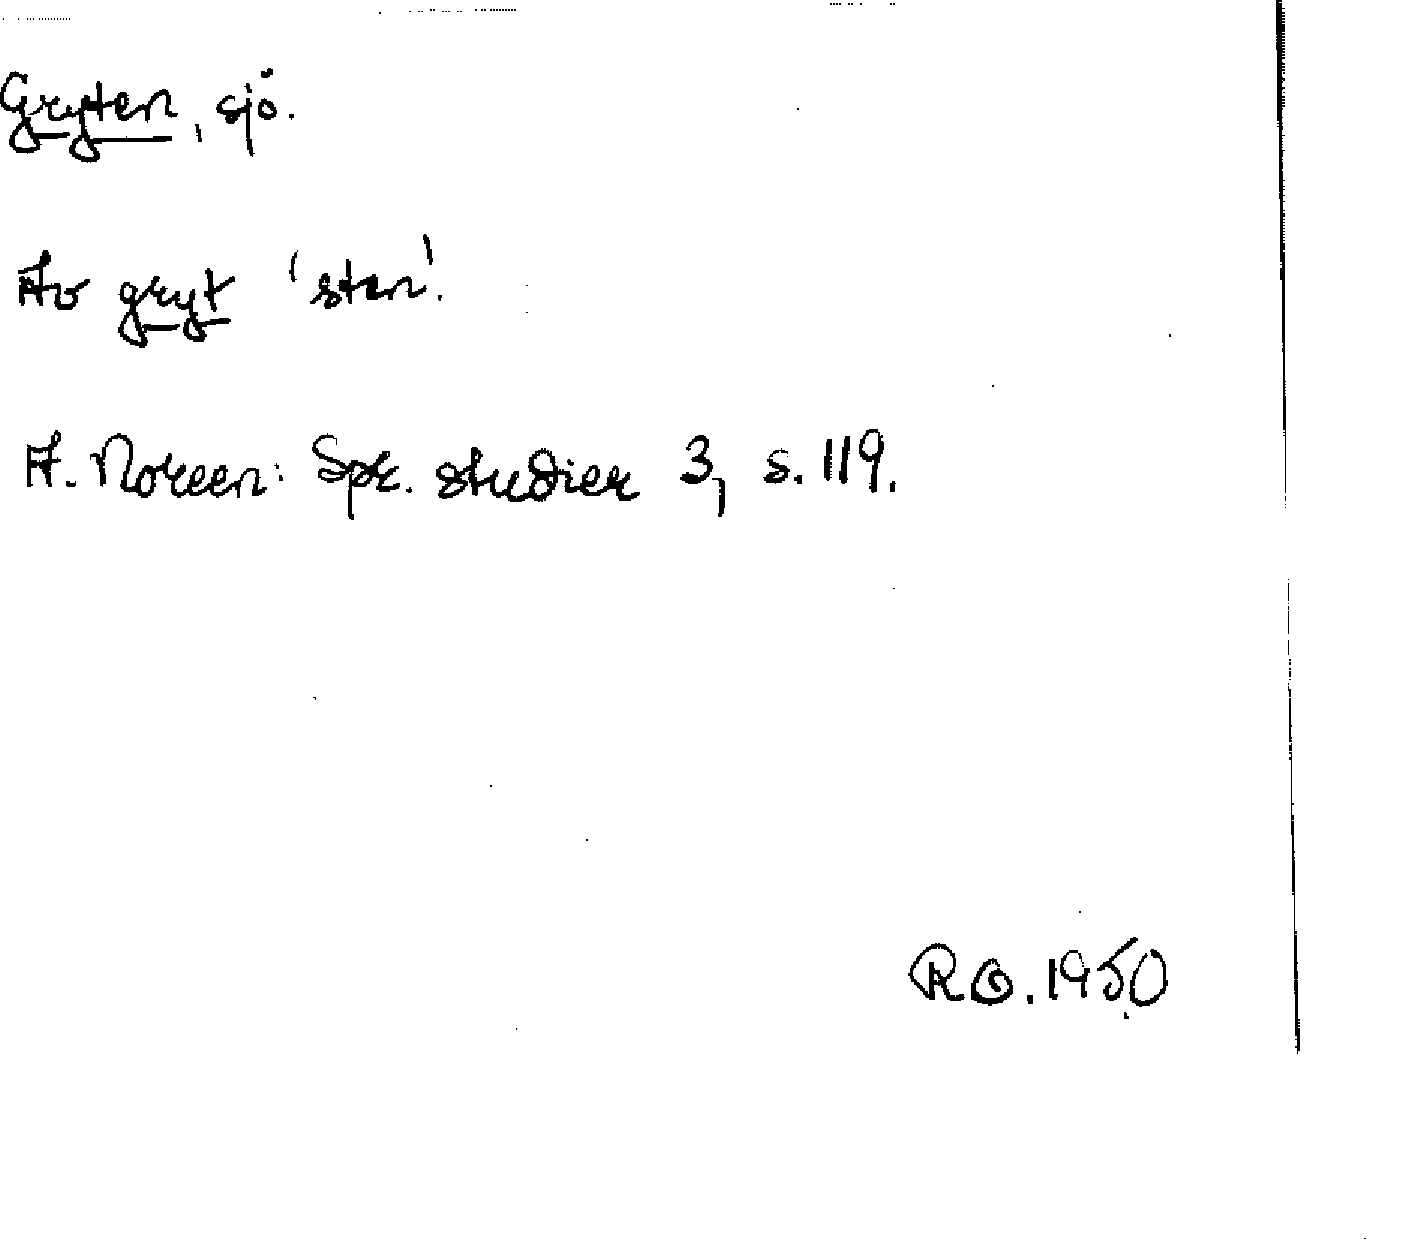 Gryten, sjö.
Av gryt 'sten'.
A. Noreen: Spr. studier 3, s. 119.
RO. 1950